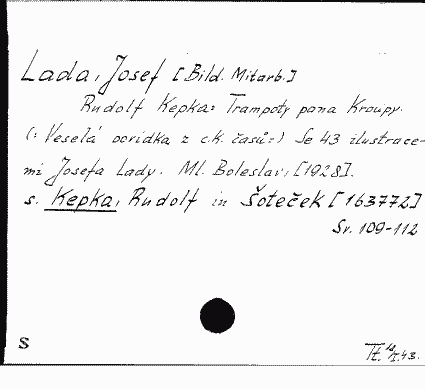 Lada, Josef [Bild. Mitarb.]
Rudolf Kepka: Trampoty pana Kroupy.
(: Veselá povídka z c.k. časů:) Se 43 ilustrace-
mi Josefa Lady. Ml. Boleslav, [1928].
s. Kepka, Rudolf in Šoteček [163772]
Sv. 109-112
S